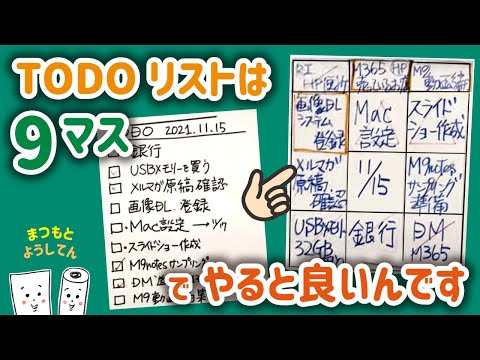 TODOリストは
9マス
でやると良いんです
まつもと
ようしてん
2021.11.15
銀行
USBメモリーを買う
メルマガ原稿確認
画像DL 登録
Mac設定→11/17
スライドショー作成
M9notesサンプリング
DM
M9動
M365 HP
画像DL
システム
登録
Mac
設定
スライド
ショー作成
メルマガ
原稿
確認
11/15
M9notes
サンプリング
準備
USBメモリ
32GB
銀行
DM
M365